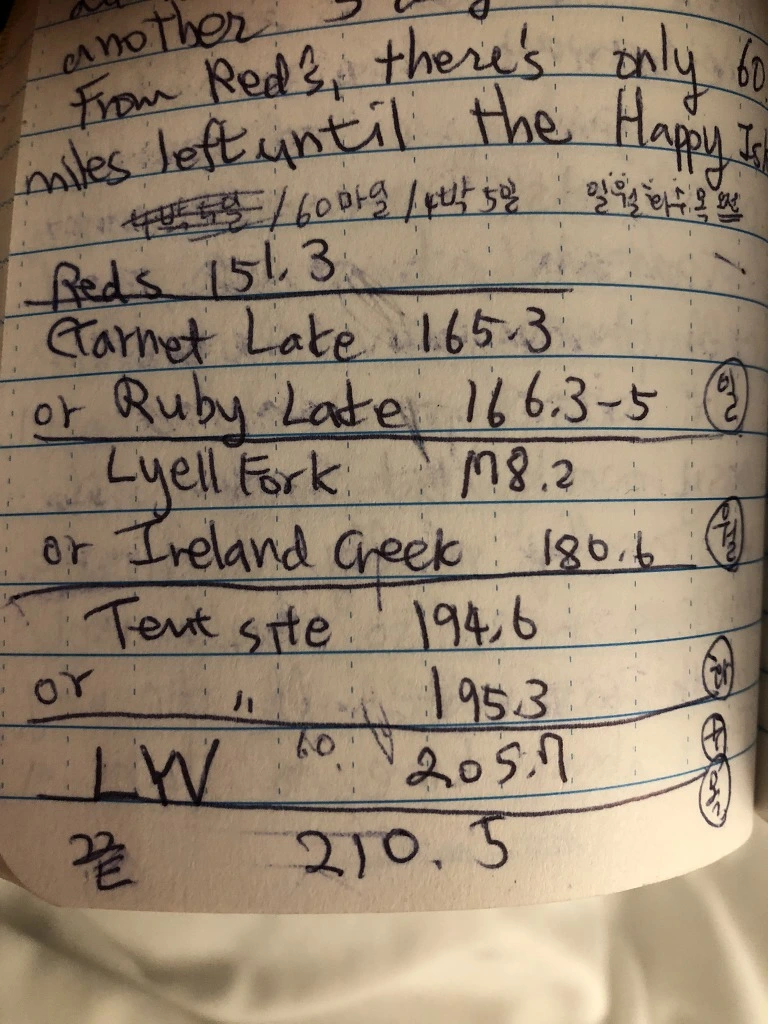 another
From Red's, there's only 60
miles left until the Happy Isl
4박5일 /60마일 /4박5일 일월화수목
Reds 151.3
Garnet Late 165.3
or Ruby Late 166.3-5 일
Lyell Fork 178.2
or Ireland Creek 180.6 월
Tent site 194.6
or " 195.3 화
LYV 60. 205.7 수
끝 210.5 목